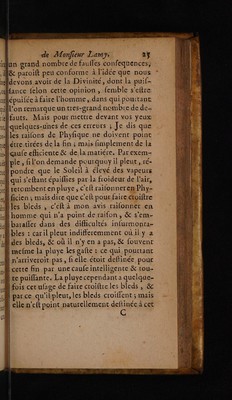 de Monsieur Lamy. 25
un grand nombre de fausses consequences,
& paroist peu conforme à l'idée que nous
devons avoir de la Divinité, dont la puis-
sance selon cette opinion, semble s'estre
épuisée à faire l'homme, dans qui pourtant
l'on remarque un tres-grand nombre de de-
fauts. Mais pour mettre devant vos yeux
quelques-unes de ces erreurs; Je dis que
les raisons de Physique ne doivent point
estre tirées de la fin; mais simplement de la
cause efficiente & de la matiere. Par exem-
ple, si l'on demande pourquoy il pleut, ré-
pondre que le Soleil à élevé des vapeurs
qui s'estant épaissies par la froideur de l'air,
retombent en pluye, c'est raisonner en Phy-
sicien; mais dire que c'est pour faire croistre
les bleds, c'est à mon avis raisonner en
homme qui n'a point de raison, & s'em-
barasser dans des difficultés insurmonta-
bles: car il pleut indifferemment où il y a
des bleds, & où il n'y en a pas, & souvent
mesme la pluye les gaste: ce qui pourtant
n'arriveroit pas, si elle étoit destinée pour
cette fin par une cause intelligente & tou-
te puissante. La pluye cependant a quelque-
fois cet usage de faire croistre les bleds, &
par ce qu'il pleut, les bleds croissent; mais
elle n'est point naturellement destinée à cet
C